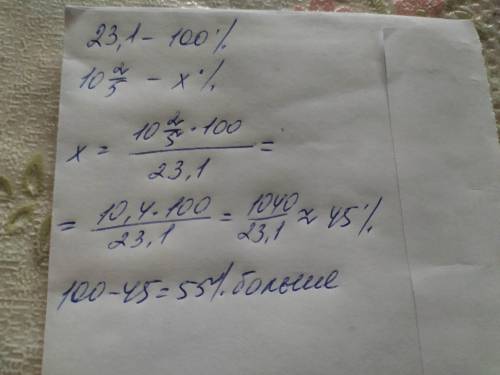 23,1 - 100%
10 2/5 - x%
x = (10 2/5 · 100)/23,1 =
= (10,4 · 100)/23,1 = 1040/23,1 ≈ 45%
100 - 45 = 55% больше